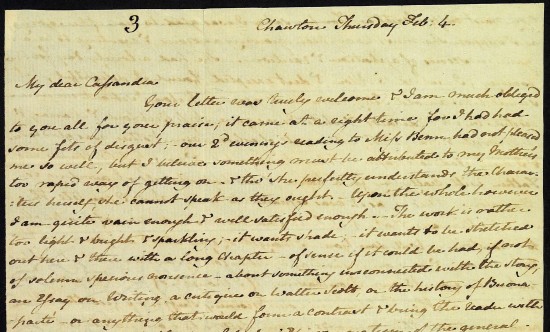 3
Chawton Thursday Feb: 4.
My dear Cassandra
Your letter was truly welcome & I am much obliged
to you all for your praise; it came at a right time, for I had had
some fits of disgust; - our 2d evening's reading to Miss Benn had not pleased
me so well, but I believe something must be attributed to my Mother's
too rapid way of getting on - & tho' she perfectly understands the Charac-
-ters herself, she cannot speak as they ought. - Upon the whole however
I am quite vain enough & well satisfied enough. - The work is rather
too light & bright & sparkling; - it wants shade - it wants to be stretched
out here & there with a long Chapter - of sense if it could be had, if not
of solemn specious nonsense - about something unconnected with the story;
an Essay on Writing, a critique on Walter Scott, or the history of Buona-
-parte - or anything that would form a contrast & bring the reader with
of the general